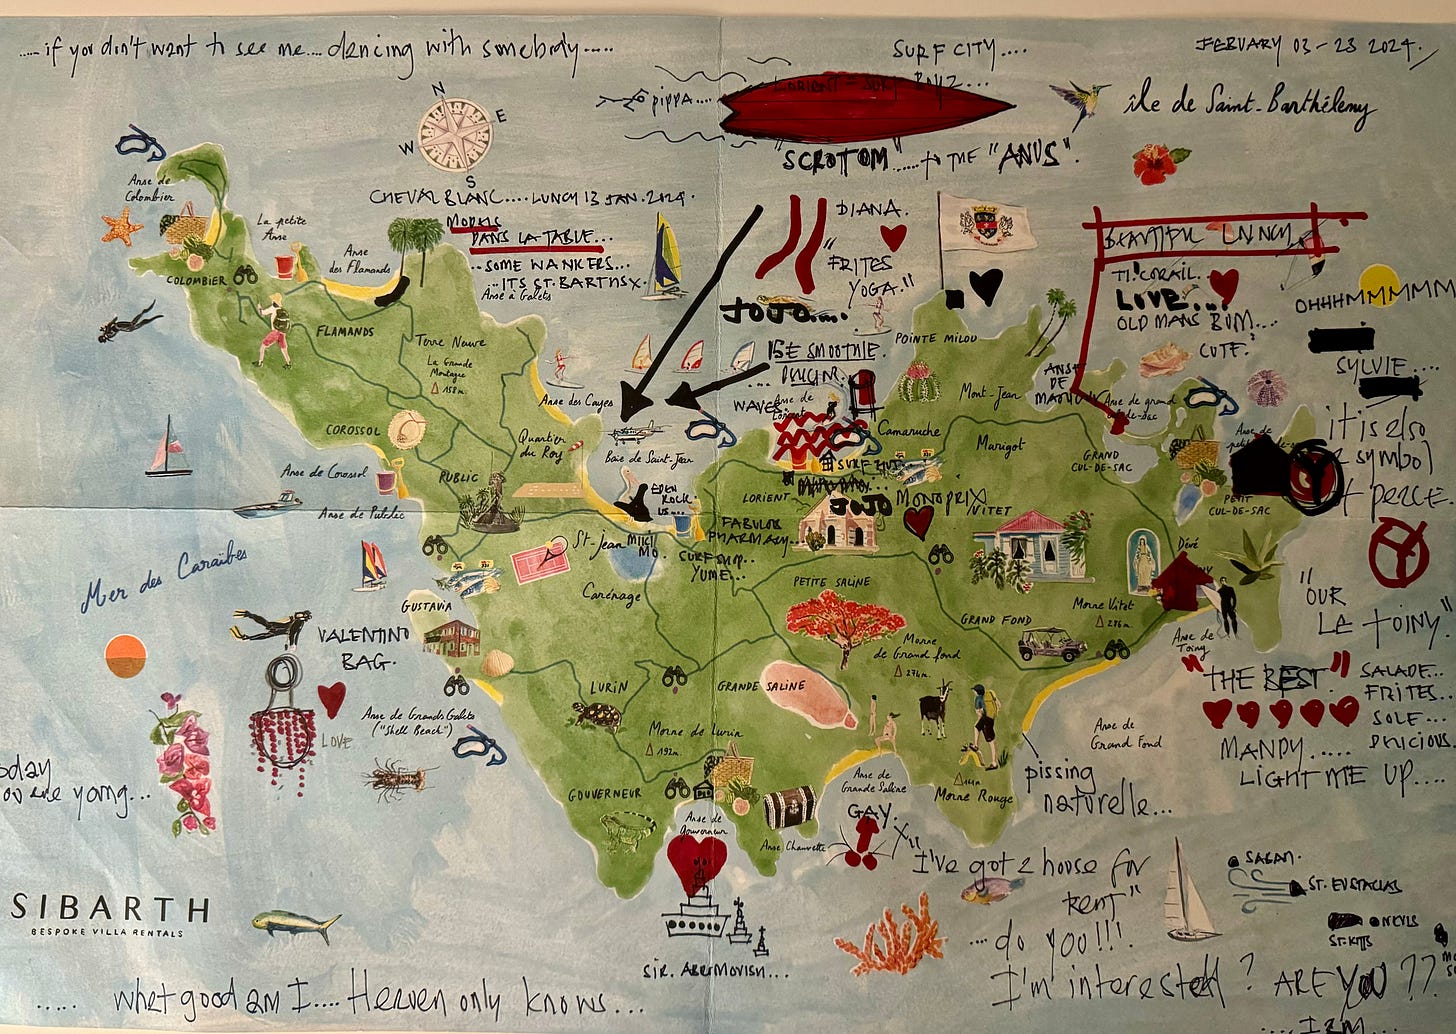 .....if you don't want to see me.... dancing with somebody.....
SURF CITY....
FEBUARY 03-23 2024.
pippa....
LORIENT
île de Saint-Barthélemy
"SCROTOM"......to THE "ANUS".
N
E
W
S
CHEVAL BLANC....LUNCH 13 JAN.2024.
MODELS
DANS LA TABLE...
..SOME WANKERS...
..ITS ST.BARTHSX.
Anse à Galets
DIANA.
"FRITES
YOGA."
JOJO....
15E SMOOTHIE.
WAVES.
BEAUTIFUL LUNCH
TI! CORAIL.
LOVE....
OLD MANS BUM....
CUTE.
OHHHMMMMMM
SYLVIE....
it is also
a symbol
of peace.
Anse de
Colombier
La petite
Anse
Anse
des Flamands
COLOMBIER
FLAMANDS
Terre Neuve
La Grande
Montagne
158m.
Anse des Cayes
POINTE MILOU
Mont-Jean
ANSE
DE
Anse de grand
cul-de-sac
COROSSOL
Quartier
du Roy
Baie de Saint-Jean
Camaruche
Marigot
GRAND
CUL-DE-SAC
Anse de
PETIT
CUL-DE-SAC
Anse de Corossol
PUBLIC
Anse de Public
EDEN
ROCK
US...
LORIENT
SURF HUT
JOJO MONOPRIX
VITET
St-Jean
MIKI
MO.
FABULOUS
PHARMACY...
SURF SHOP..
YUME...
Mer des Caraïbes
Carénage
PETITE SALINE
Dévé
"OUR
LE TOINY."
GUSTAVIA
VALENTINO
BAG.
Morne
de Grand fond
274m.
GRAND FOND
Morne Vitet
286m.
Anse de
Toiny
"THE BEST"
SALADE...
FRITES...
SOLE...
DELICIOUS.
MANDY.....
LIGHT ME UP....
LURIN
GRANDE SALINE
Anse de Grands Galets
("Shell Beach")
LOVE
Morne de Lurin
192m.
Anse de
Grand Fond
pissing
naturelle...
GOUVERNEUR
Anse de
Gouverneur
Anse Chauvette
Anse de
Grande Saline
Morne Rouge
GAY.
you are young...
"I've got a house for
rent"
.... do you!!!.
I'm interested? ARE YOU??
.... I am...
SABAN.
ST. EUSTACIAS
ST. KITTS
SIBARTH
BESPOKE VILLA RENTALS
SIR. ABRIMOVISH...
..... what good am I.... Heaven only knows...